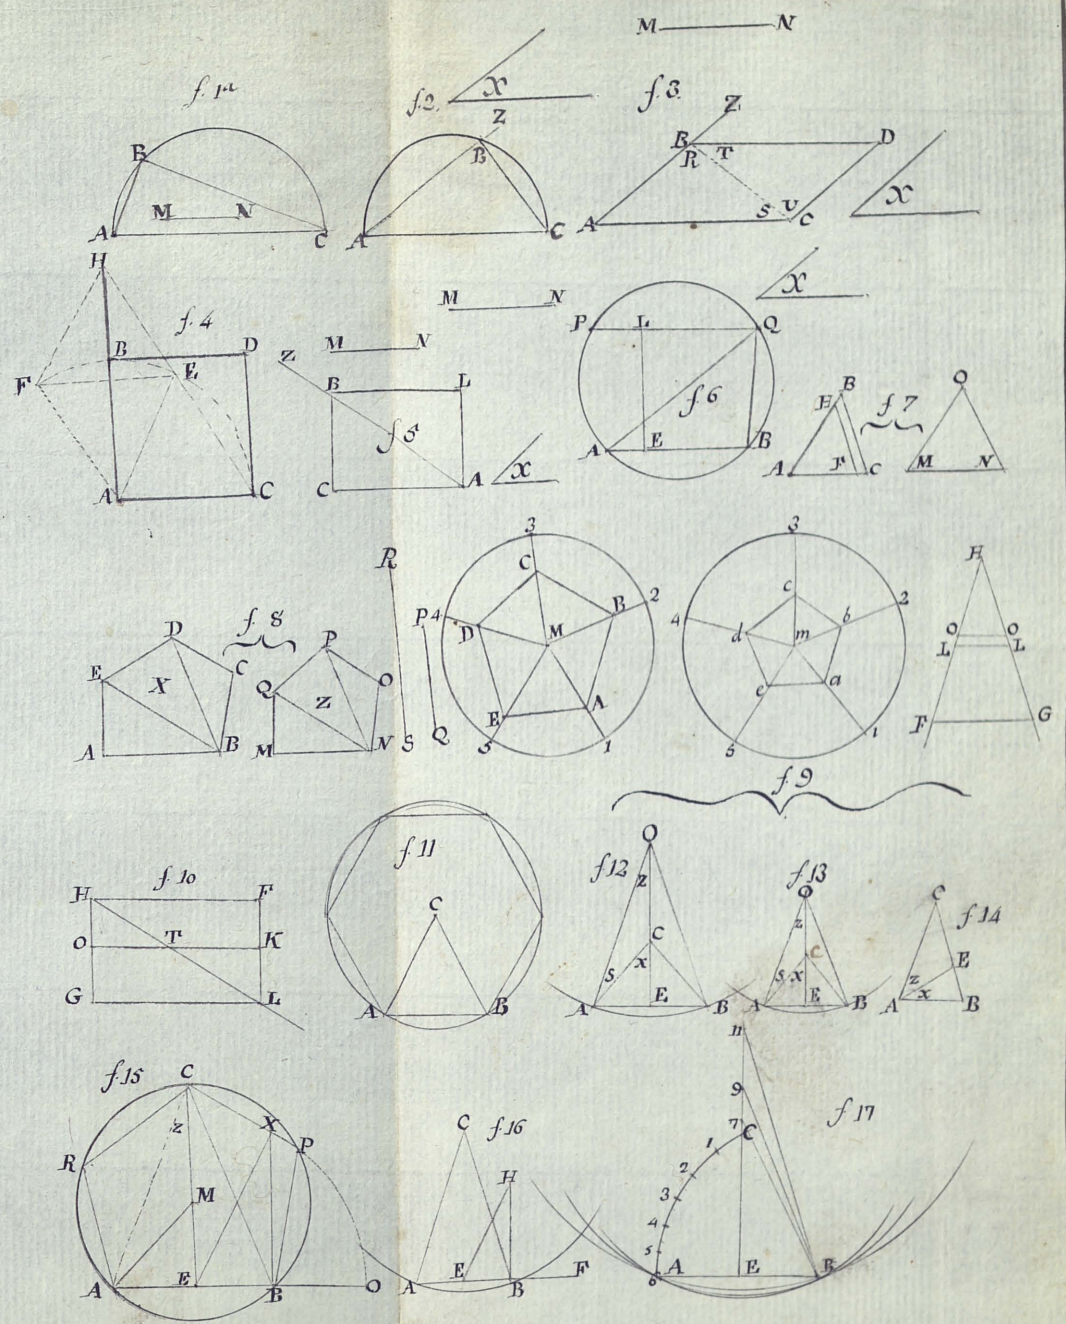 M N
f. 1ª
B
M N
A C
f. 2. X
Z
B
A C
f. 3.
Z
B D
R T
S V
A C
X
H
f. 4
B D
E
F
A C
M N
Z
B L
f 5
C A
X
M N
X
P L Q
f 6
A E B
B
H
f 7
A F C
O
M N
f. 8
D
E C
X
A B
P
Q O
Z
M N
R
S
P
Q
3
C
4 2
D B
M
E A
5 1
3
c
4 2
d b
m
e a
5 1
H
O O
L L
F G
f. 9
f. 10
H F
O T K
G L
f. 11
C
A B
f 12
O
Z
C
S X
A E B
f. 13
O
Z
C
S X
A E B
C
f 14
E
Z
A X B
f. 15
C
Z X
R P
M
A E B O
C
f 16
H
A E B F
11
9
7
C
f 17
1
2
3
4
5
6
A E B